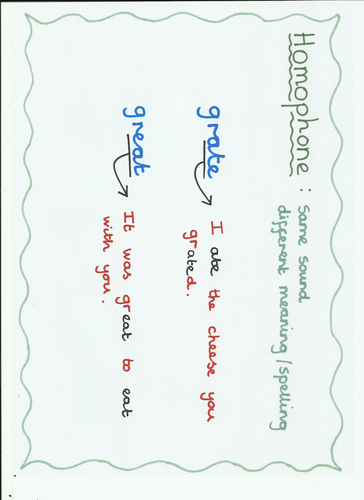 Homophone : same sound
different meaning/spelling
grate → I ate the cheese you
grated.
great → It was great to eat
with you.